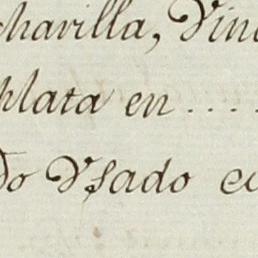 chavilla, Vin
plata en ....
do Vsado e